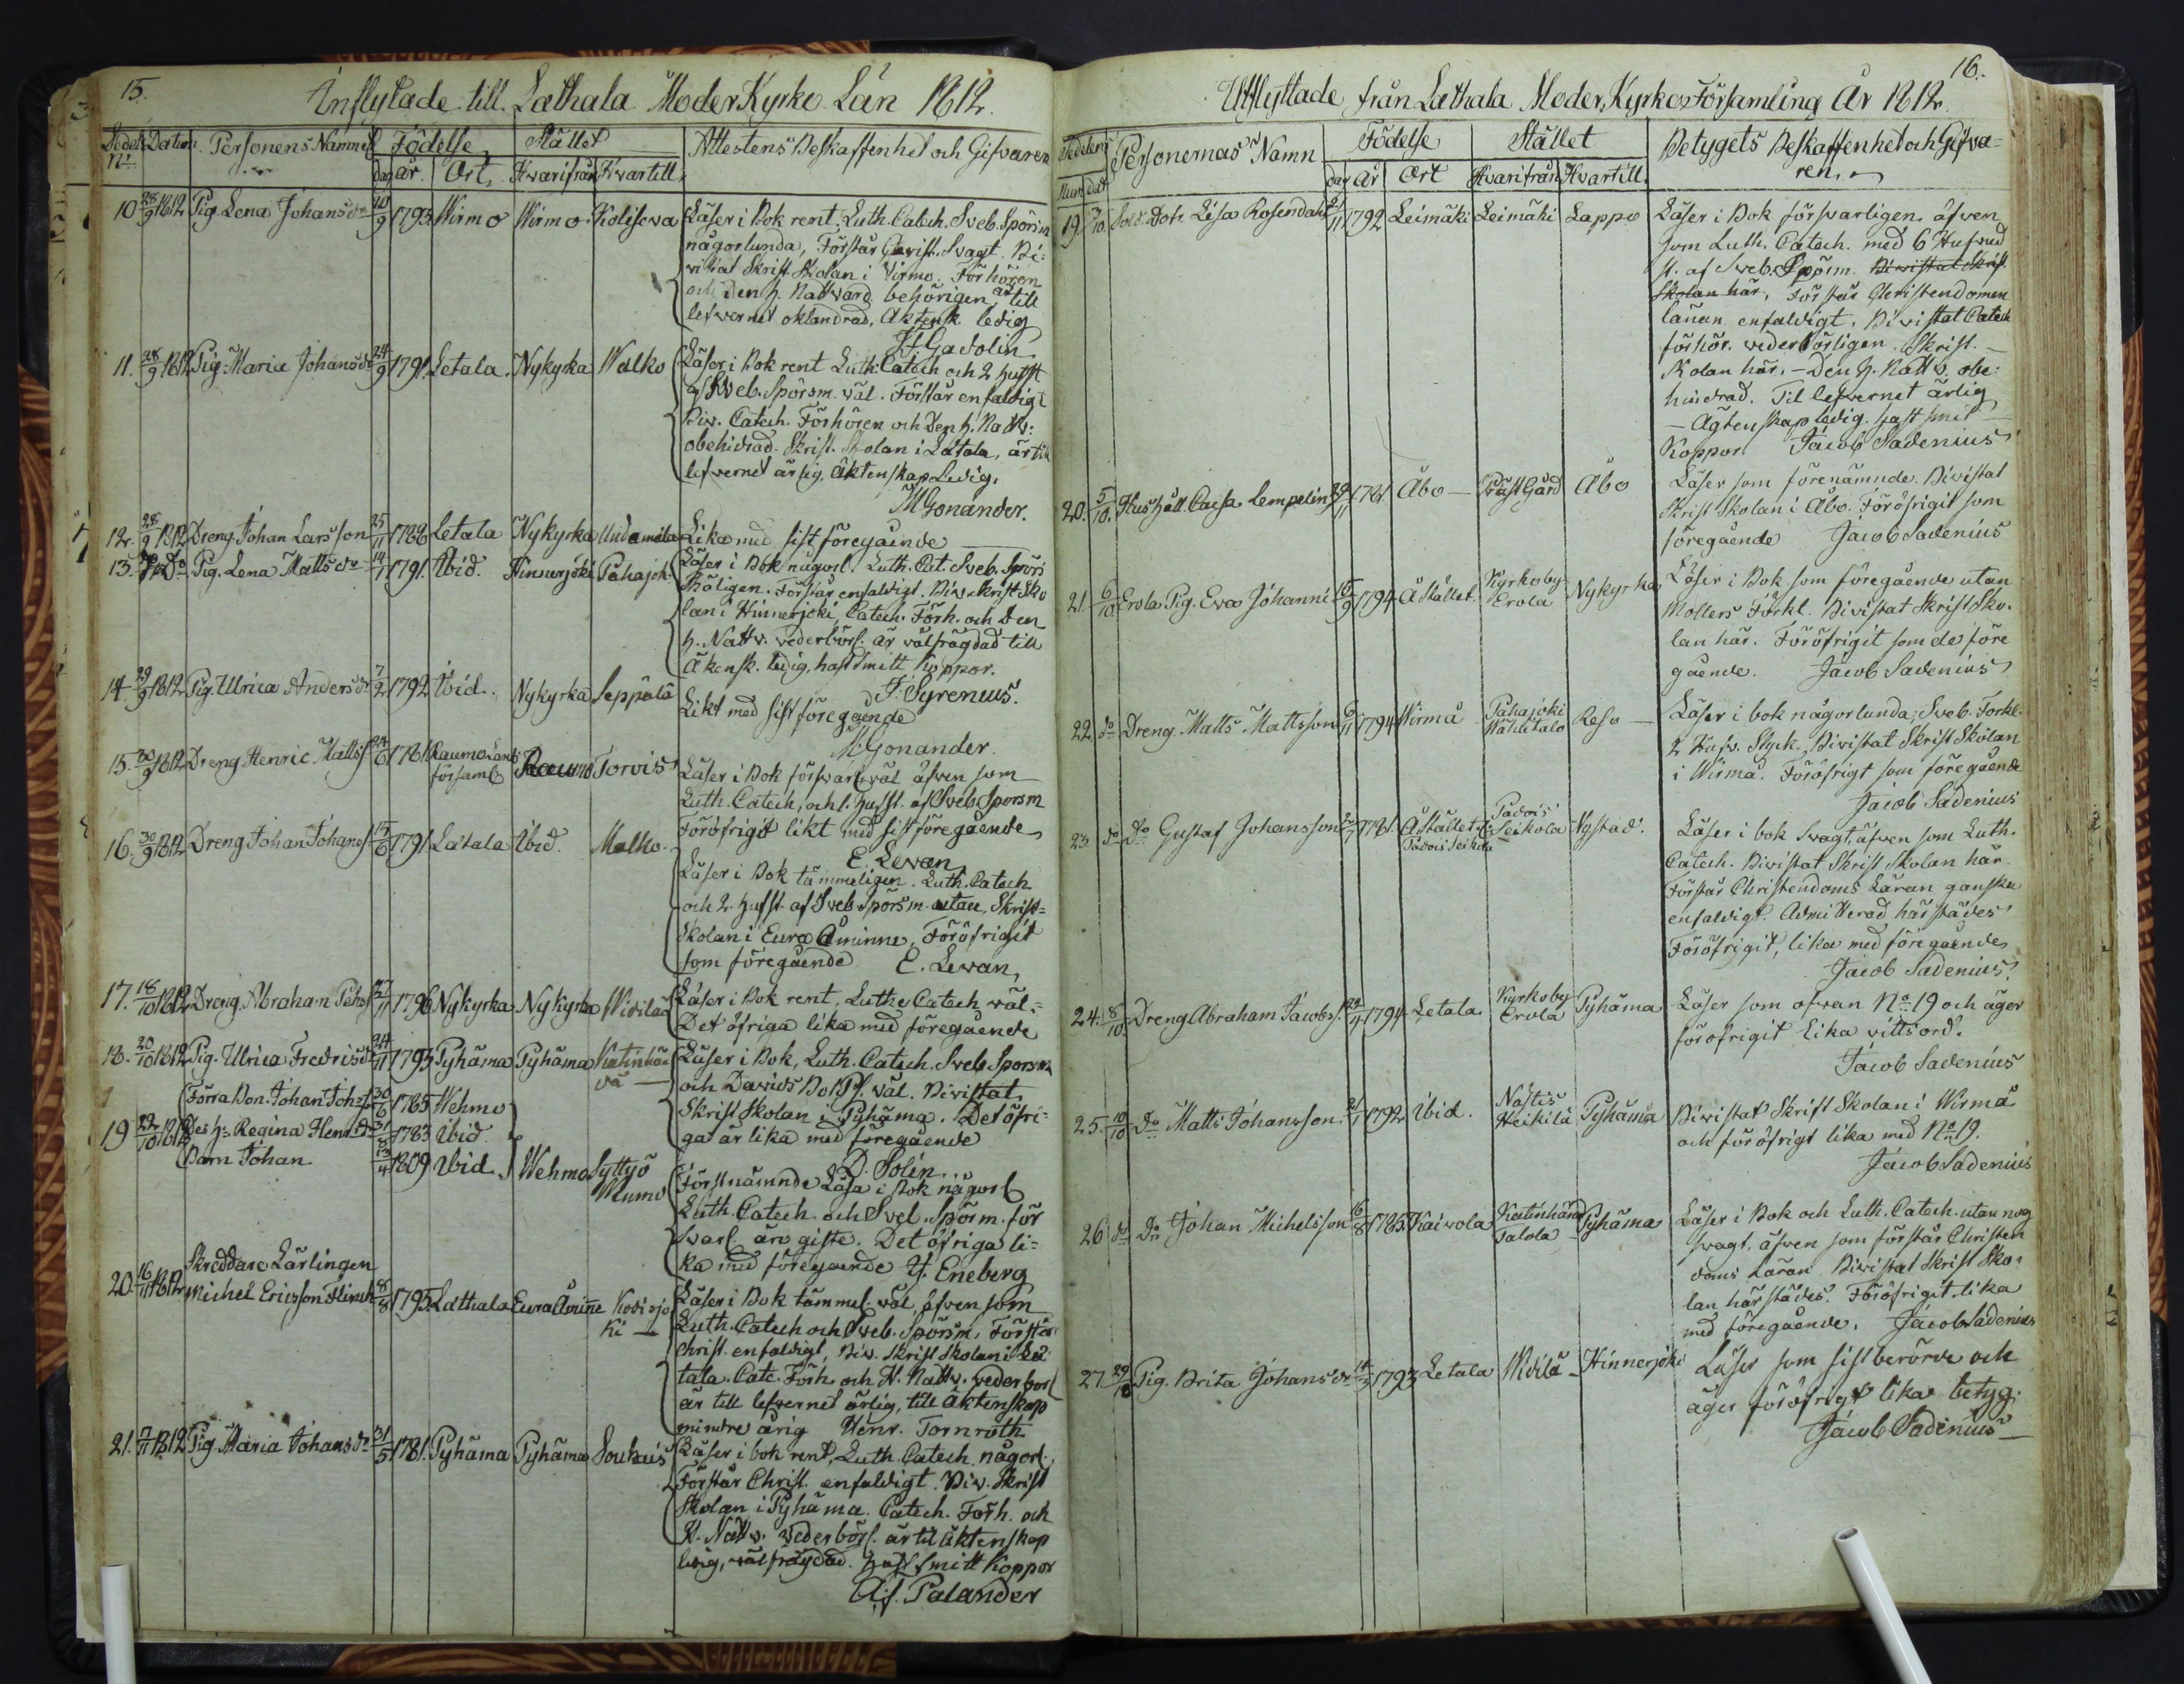 15.
Inflytade till Lathala Moder Kyrko Län 1812.
Sedel. Datum. Personens Namn Födelse Stället Attestens Beskaffenhet och Gifvaren
No dag år. Ort. Hvarifrån Hvartill.
10 28/9 1812 Pig. Lena Johansdr 10/9 1793 Wirmo Wirmo Kolisewa Läser i Bok rent, Luth. Catech. Sveb. Spörsm
någorlunda, Förstår Christ. Svagt. Bi-
vistat Skrift Skolan i Virmo. Förhören
och Den h. Nattvard behörigen, är till
lefvernet oklandrad, Äktensk. ledig
J. Gadolin
11. 28/9 1812 Pig. Maria Johansdr 24/9 1791. Letala. Nykyrka Walko Läser i Bok rent Luth. Catech och 2 hufst
af Sveb. Spörsm. väl. Förstår enfaldigt
Biw. Catech. Förhören och Den h. Nattv:
obehidrad. Skrift Skolan i Letala, är till
lefvernet ärlig, Äktenskap Ledig.
M Gonander.
12. 28/9 1812 Dreng. Johan Larsson 25/11 1788 Letala Nykyrka Uudamala Lika med sist föregående
13. Do Do Pig. Lena Mattsdr 14/7 1791. Ibid. Hinnerjoki Pahajok. Läser i Bok någorl. Luth. Cat. Sveb. Spörs
Skäligen. Förstår enfaldigt. Biw. Skrift Sko
lan i Hinnerjoki, Catech. Förh. och Den
h. Nattv. vederbörl. är välfrägdad till
Äkensk. ledig, haft Smitt Koppor.
J. Syrenius.
14 29/9 1812 Pig. Ulrica Andersdr 7/2 1792 ibid. Nykyrka Seppälä Likt med sist föregående
M. Gonander.
15. 30/9 1812 Dreng Henric Mattss 24/6 1781 Raumo Lands Raumo Torvis Läser i Bok försvarl. väl äfven som
församl
Luth. Catech, och 1. hufst. af Sveb Sporsm
Föröfrigit likt med sist föregående
E. Levan
16. 30/9 1812 Dreng Johan Johanss 15/6 1791 Latala Ibid. Malko. Läser i Bok tämmeligen. Luth. Catech.
och 2. hufst. af Sveb Spörsm. utan, Skrift-
Skolan i Eura Åminne, Föröfrigit
som föregående E. Levan,
17. 18/10 1812 Dreng. Abraham Peters 27/11 1796 Nykyrka Nykyrka Widilä Läser i Bok rent, Luthe Catech väl.
Det öfriga lika med föregående
18. 20/10 1812 Pig. Ulrica Fredrisdr 24/11 1793 Pyhäma Pyhäma Katinhän Läser i Bok, Luth. Catech. Sveb. Sporsm
vä
och Davids Bot Ps. väl. Bivistat
Skrift Skolan i Pyhäma. Det öfri-
ga är lika med föregående
D. Solin.
Förra Bon. Johan Joh-s 30/6 1785 Wehmo
19 22/10 1812 Des hs Regina Henrdr 31/8 1783 ibid.
Barn Johan 13/4 1809 ibid. Wehmo Syttyö Förstnämnde Läsa i Bok någorl
Mumo
Luth. Catech. och Sveb. Spörm. för
svarl äro gifte. Det öfriga li-
ka med föregående H. Eneberg
Skreddare Lärlingen
20. 16/11 1812 Michel Ericsson Flinck 8/8 1795 Lathala Eura Åminne Kodisjo Läser i Bok tämmel. väl, äfven som
ki
Luth. Catech och Sveb. Spörsm. Förstår
Christ. enfaldigt, Biw. Skrift Skolan i La
tala. Cate. Förh. och H. Nattv. vederborl
är till lefvernet ärlig, till Äktenskap
mindre årig Henr. Tornroth
21. 7/11 1812 Pig. Maria Johansdr 31/5 1781. Pyhäma Pyhäma Souhais Läser i bok rent, Luth. Catech någorl.
Förstår Christ. enfaldigt. Biw. Skrift
Skolan i Pyhäma. Catech. Förh. och
H. Nattv. vederbörl. är til Äktenskap
ledig, välfrägdad. haft Smitt Koppor
Af. Palander
16.
Utflyttade från Lathala Moder Kyrko Församling År 1812.
Sedelens Personernas Namn Födelse Stället Betygets Beskaffenhet och Gifva-
Num. dat dag År Ort Hvarifrån Hvartill. ren.
19. 2/10. Sold. Dotr. Lisa Rosendahl 21/11 1792 Leimäki Leimäki Lappo Läser i Bok försvarligen äfven
som Luth. Catech. med 6 Hufvud
st. af Sveb. Spörm. Bivistat Skrif.
Skolan här, Förstår Christendomen
läran enfaldigt. Bivistat Catech
förhör. vederbörligen. Skrift.
Skolan här. - Den h. Nattv. obe-
hindrad. Til lefvernet ärlig
- Ägtenskap ledig. haft smit
Koppor. Jacob Sadenius
20. 5/10. Hushjäll. Caisa Lempelin 29/11 1781 Åbo - Prästgård Åbo Läser som förenämnde. Bivistat
Skrift Skolan i Åbo. Föröfrigit som
föregående Jacob Sadenius
21. 6/10 Erola Pig. Eva Johanni 15/9 1794 Å Stället. Kyrkoby Nykyrka Läser i Bok som föregående utan
Erola
Mollers Förkl. Bivistat Skrift Sko-
lan här. Föröfrigit som de före
gående. Jacob Sadenius
22. do Dreng Matts Mattsson 6/11 1794 Wirmå Pahajoki Reso - Läser i bok någorlunda; Sveb. Forkl.
Wähätalo
2 Hufv. Styck. Bivistat Skrift Skolan
i Wirmå. Föröfrigt som föregående
Jacob Sadenius
23. do Do Gustaf Johansson 2/7 1781 Å Stället Padois Nystad. Läser i bok Svagt, äfven som Luth.
Padois Seikola Seikola
Catech. Bivistat Skrift Skolan här.
Förstår Christendoms Läran ganska
enfaldigt. Admitterad härstädes
Föröfrigit, lika med föregående
Jacob Sadenius.
24. 8/10. Dreng Abraham Jacobss. 29/4 1794 Letala. Kyrkoby Pyhäma Läser som ofvan No 19 och äger
Erola
föröfrigit Lika vittsord.
Jacob Sadenius
25. 10/10 Do Matts Johansson. 21/1 1792 ibid. Nästis Pyhäma Bivistat Skrift Skolan i Wirmå
Heikilä
och föröfrigt lika med No 19.
Jacob Sadenius
26 do Do Johan Michelsson 16/8 1785 Kaivola Katinhänd Pyhäma Läser i Bok och Luth. Catech. utan nog
Talola
svagt. äfven som förstår Christen
doms Läran. Bivistat Skrift Sko-
lan härstädes. Föröfrigit lika
med föregående. Jacob Sadenius
27. 29/10 Pig. Brita Johansdr 14/3 1793 Letala Widilä - Hinnerjoki Läser som sist berörde och
äger föröfrigt lika betyg.
Jacob Sadenius